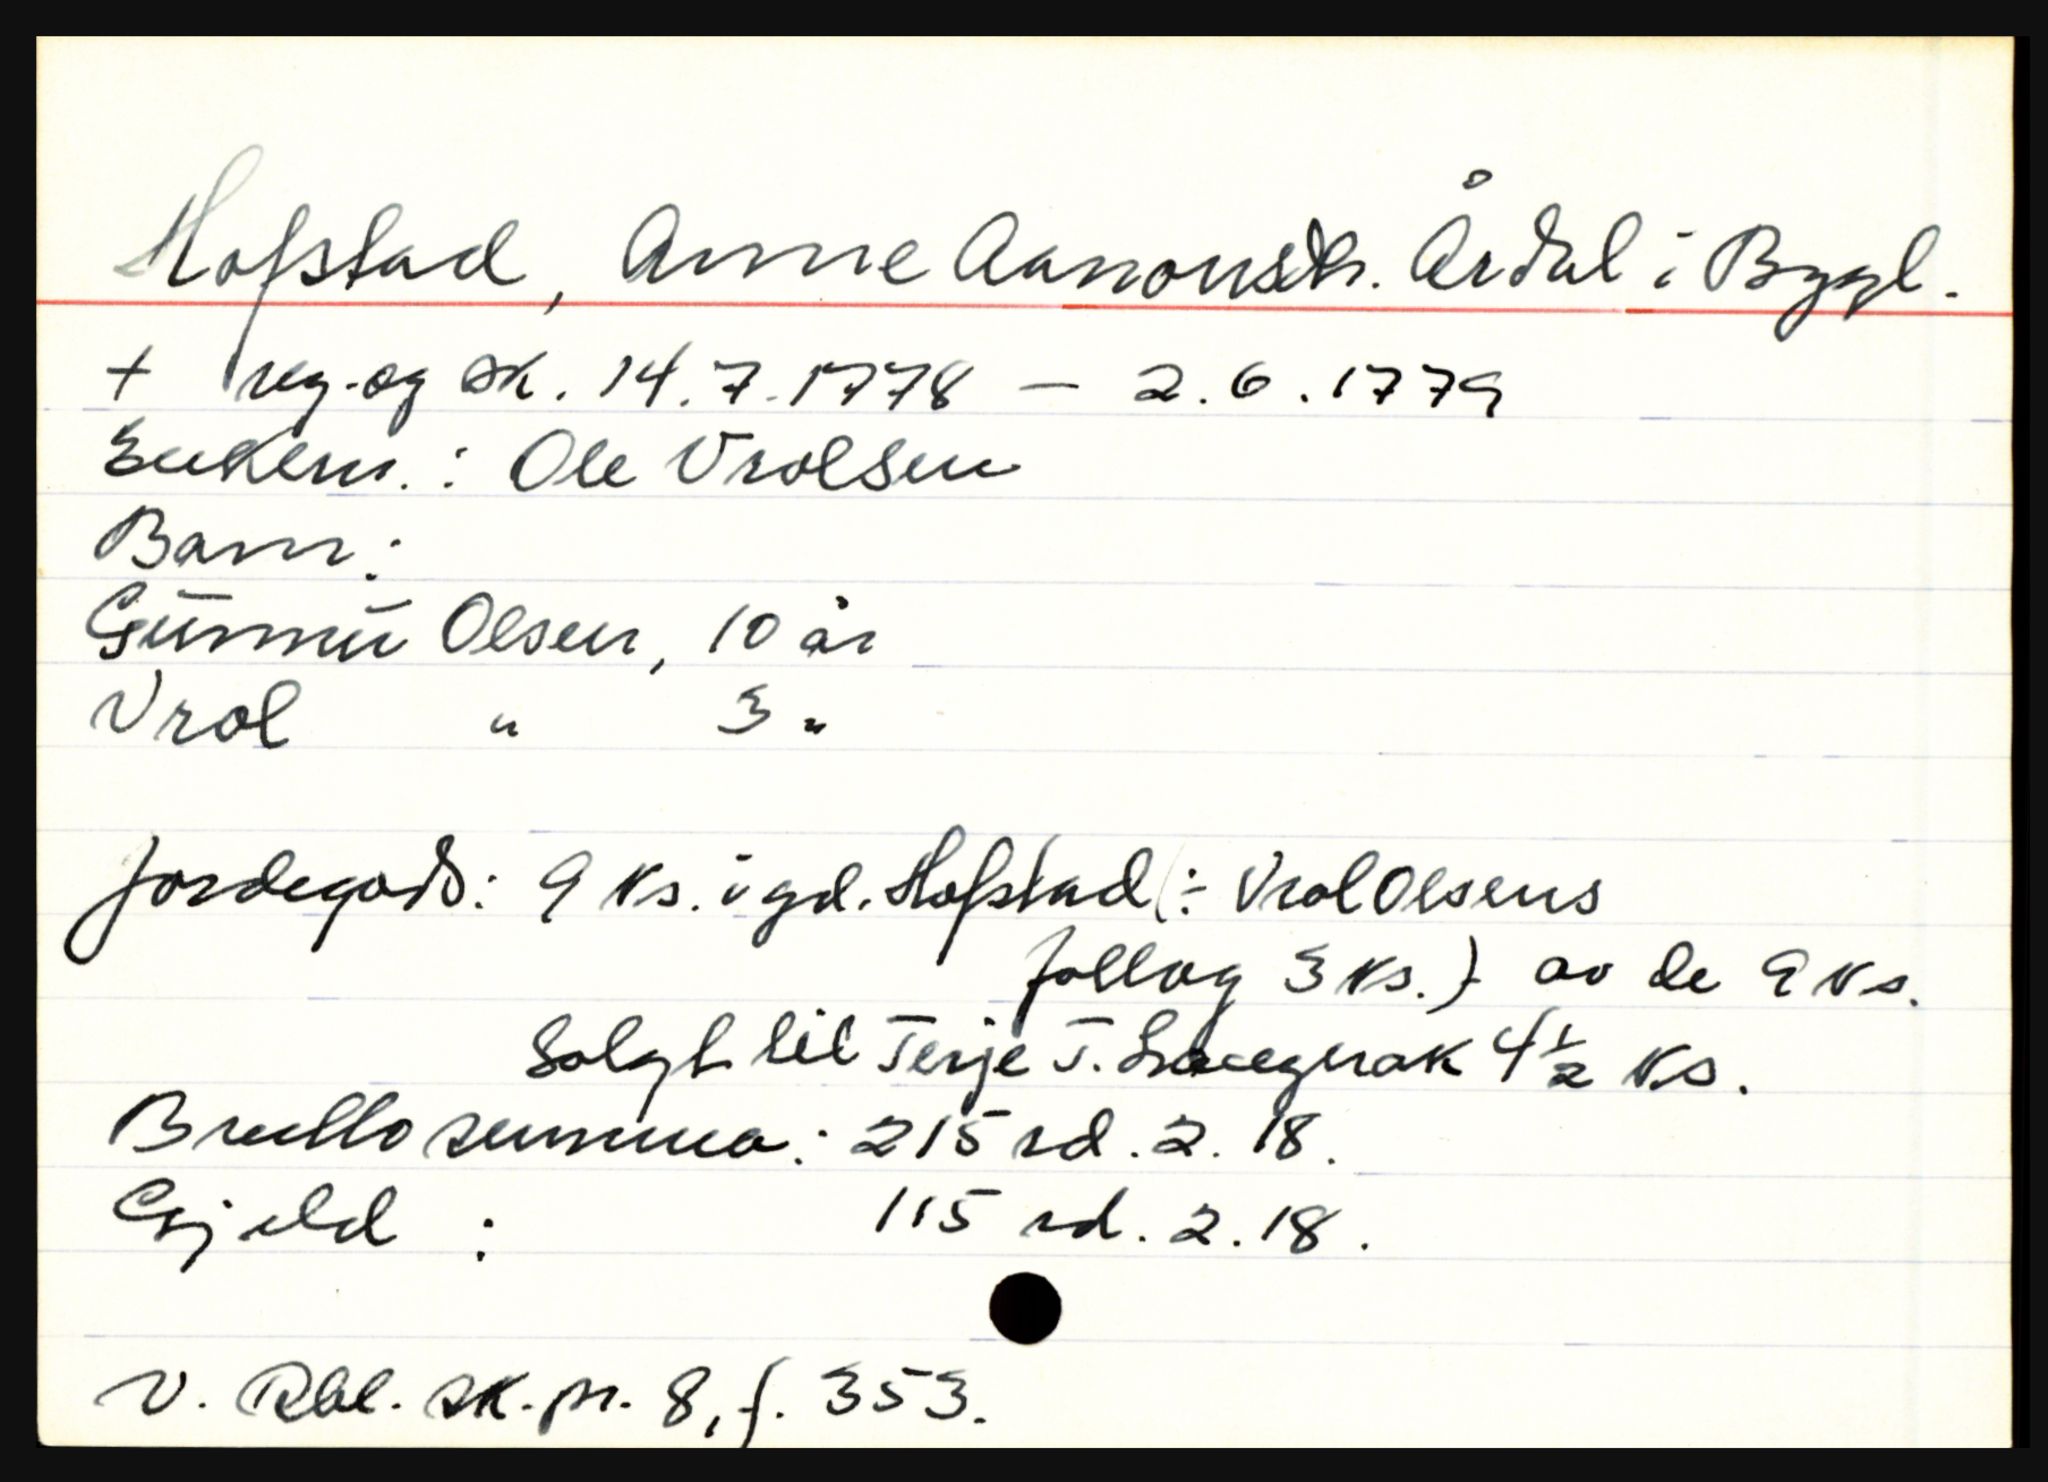 Hofstad, Anne Aanonsdtr. Årdal i Bygl.
+ reg. og sk. 14.7.1778 – 2.6.1779
Enkem.: Ole Vrolsen
Barn:
Gunnu Olsen, 10 år
Vrol " 3 "
Jordegods: 9 ks. i gd. Hofstad (: Vrol Olsens
follog 3 ks.) av de 9 ks.
solgt til Terje T. Langerak 4 1/2 ks.
Brutto summa: 215 rd. 2. 18.
Gjeld : 115 rd. 2. 18.
V. Rbl. sk. pr. 8, f. 353.